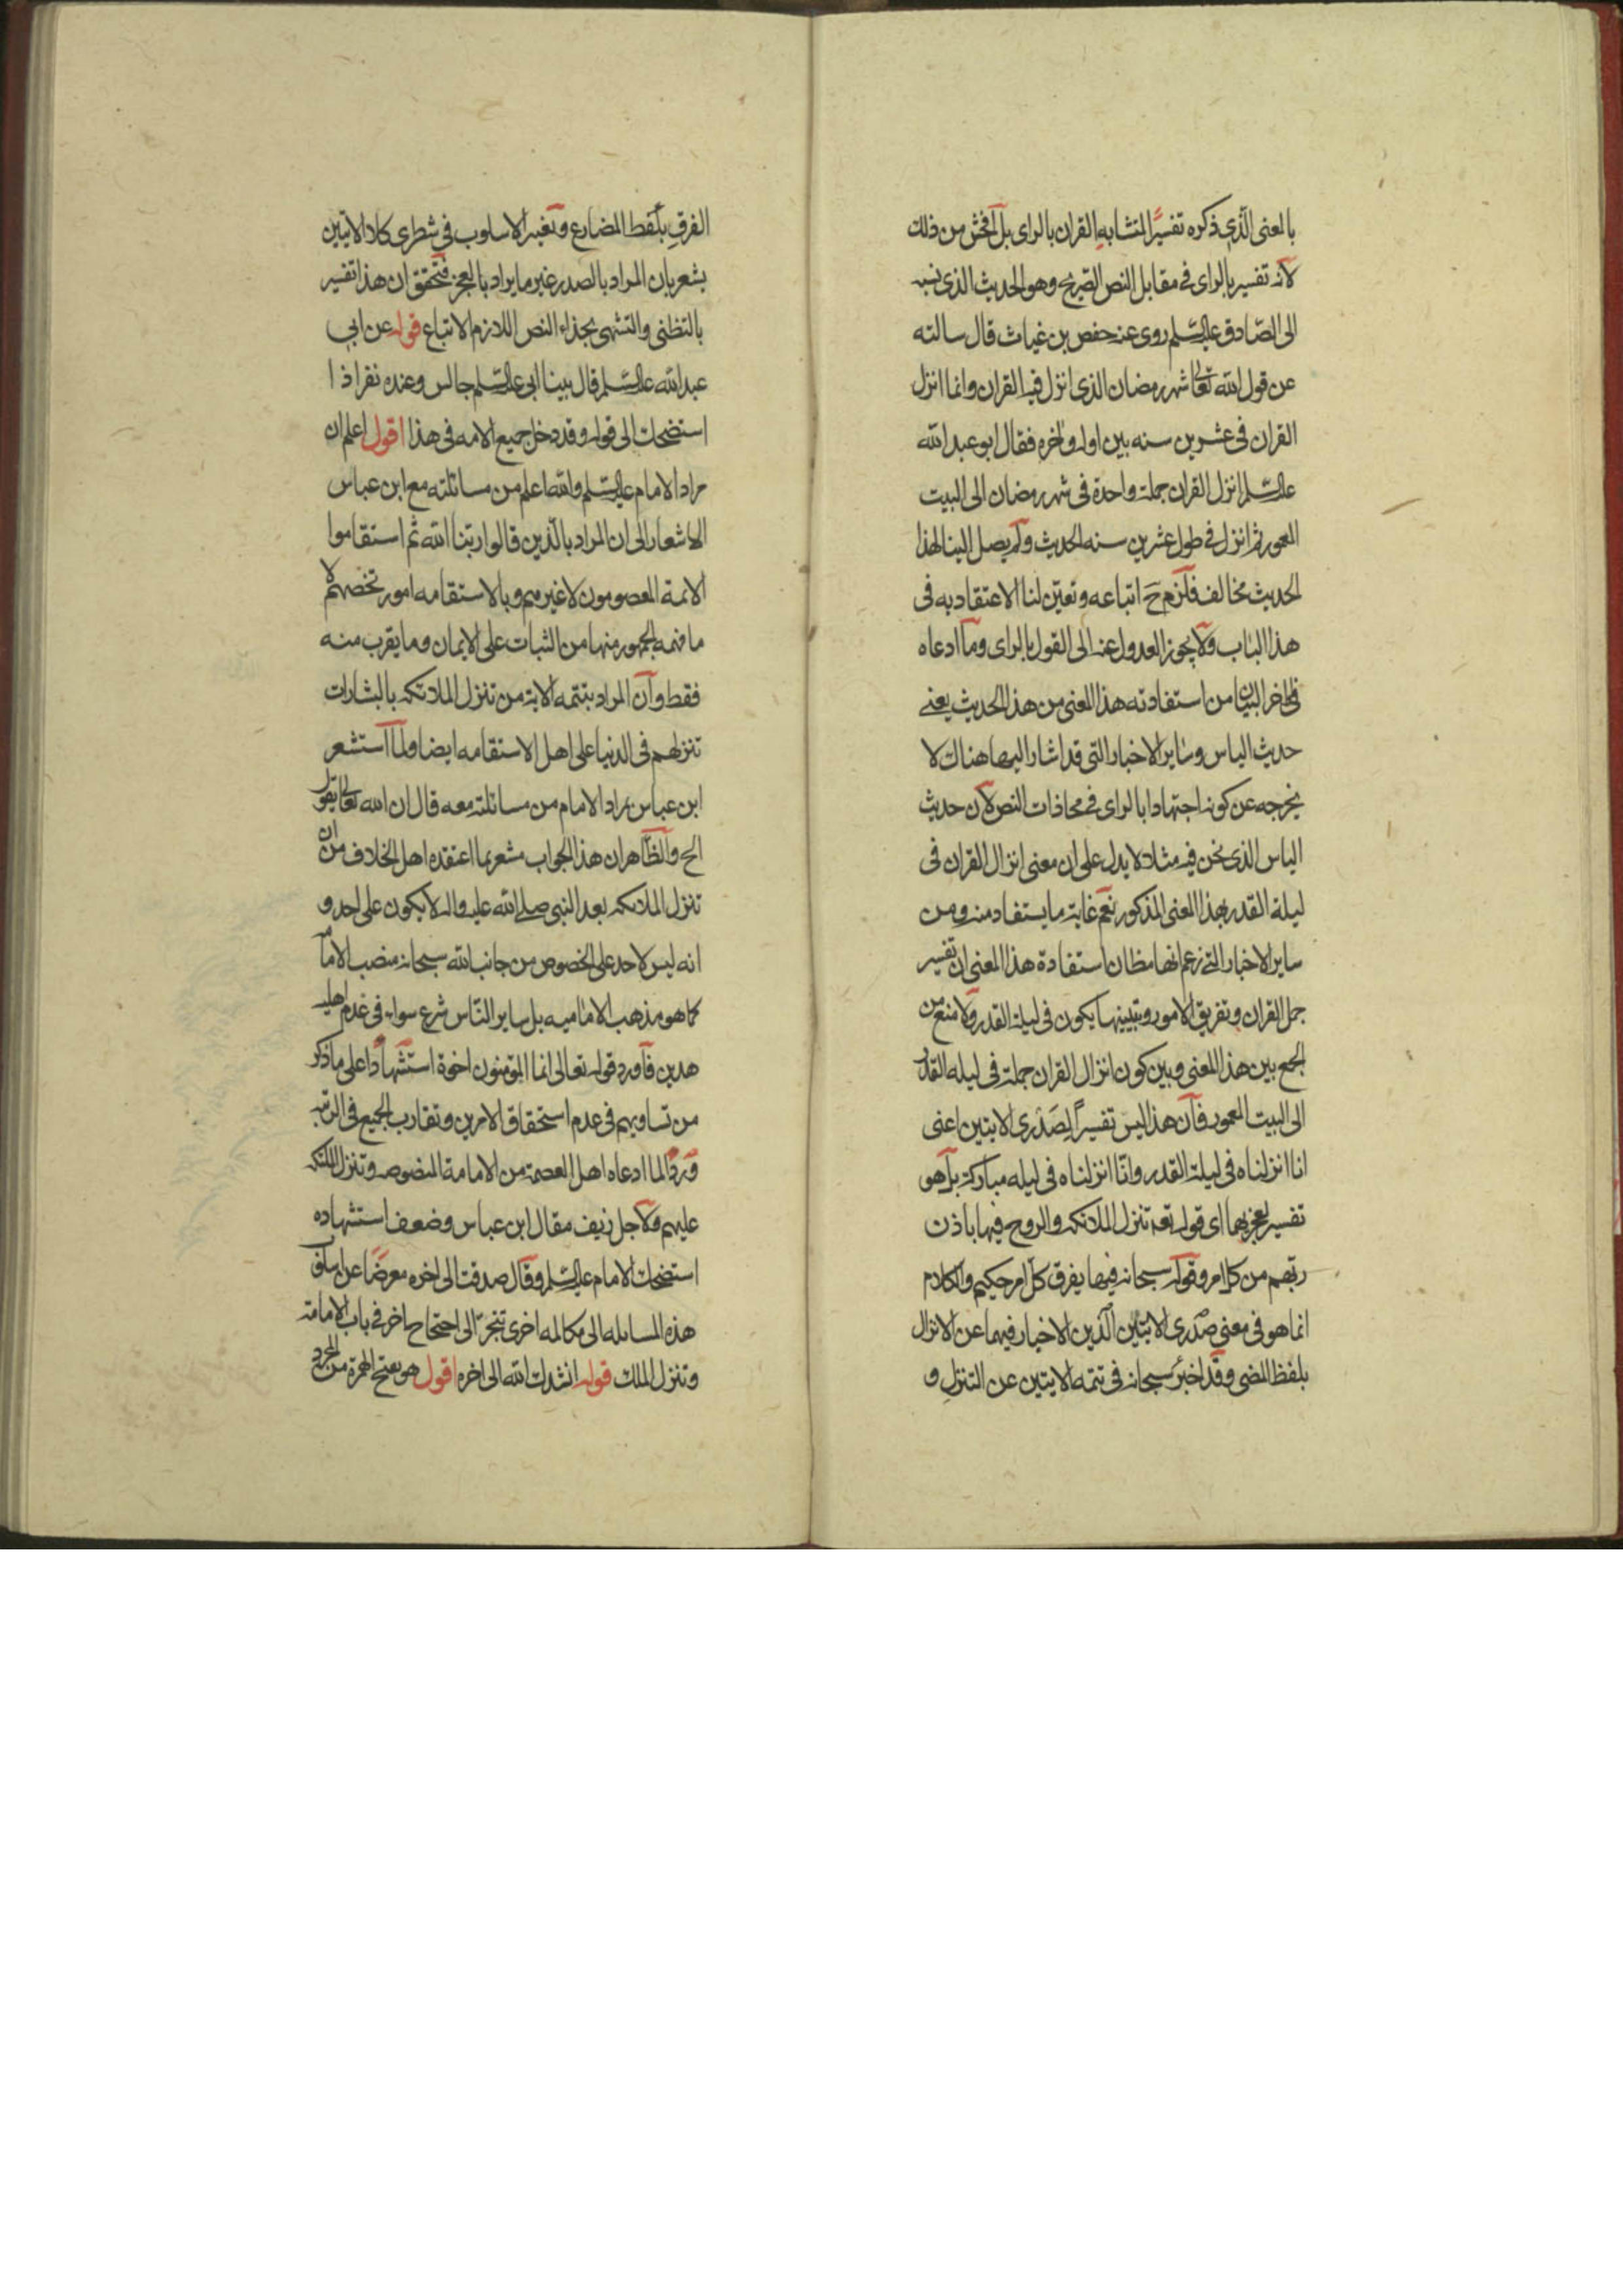 بالمعنى الذي ذكره تفسيرا لمتشابه القران بالراى بل افحش من ذلك
لانه تفسير بالراى في مقابل النص الصريح وهو الحديث الذي نسبه
الى الصادق عليه السلم روى عنه حفص بن غياث قال سالته
عن قول الله تعالى شهر رمضان الذى انزل فيه القران وانما انزل
القران في عشرين سنه بين اوله واخره فقال ابو عبد الله
عليه السلم انزل القران جملة واحدة في شهر رمضان الى البيت
المعمور ثم انزل في طول عشرين سنه الحديث ولم يصل الينا لهذا
الحديث مخالف فلزم ح اتباعه وتعين لنا الاعتقاد به في
هذا الباب ولا يجوز العدول عنه الى القول بالراى وما ادعاه
في اخر البيان من استفادته هذا المعنى من هذا الحديث يعنى
حديث الياس وساير الاخبار التى قد اشار اليها هناك لا
يخرجه عن كونه اجتهادا بالراى في محاذات النص لان حديث
الياس الذى نحن فيه مثلا لا يدل على ان معنى انزال القران في
ليلة القدر بهذا المعنى المذكور نعم غاية ما يستفاد منه ومن
ساير الاخبار التى زعم انها مظان استفادة هذا المعنى ان تفسير
جمل القران وتفريق الامور وتبيينها يكون في ليلة القدر ولا منع من
الجمع بين هذا المعنى وبين كون انزال القران جملة في ليله القدر
الى البيت المعمور فان هذا ليس تفسيرا لصدرى الايتين اعنى
انا انزلناه في ليلة القدر وانا انزلناه في ليله مباركة بل هو
تفسير لعجزيهما اى قوله تعه تنزل الملائكه والروح فيها باذن
ربهم من كل امر وقوله سبحانه فيها يفرق كل امر حكيم والكلام
انما هو في معنى صدرى الايتين الذين الاخبار فيهما عن الانزال
بلفظ المضى وقد اخبر سبحانه في تتمه الايتين عن التنزل و
الفرق بلفظ المضارع وتغير الاسلوب في شطرى كلا الايتين
يشعر بان المراد بالصدر غير ما يراد بالعجز فتحقق ان هذا تفسير
بالتظنى والتشهى بحذاء النص اللازم الاتباع قوله عن ابي
عبد الله عليه السلم قال بينا ابى عليه السلم جالس وعنده نفر اذا
استضحك الى قوله وقد دخل جميع الامه في هذا اقول اعلم ان
مراد الامام عليه السلم والله اعلم من مسائلته مع ابن عباس
الاشعار الى ان المراد بالذين قالوا ربنا الله ثم استقاموا
الائمة المعصومون لا غيرهم وبالاستقامه امور تخصهم لا
ما فهمه الجمهور منها من الثبات على الايمان وما يقرب منه
فقط وان المراد بتتمه الاية من تنزل الملائكه بالبشارات
تنزلهم في الدنيا على اهل الاستقامه ايضا ولما استشعر
ابن عباس بمراد الامام من مسائلته معه قال ان الله تعالى يقول
الح والظاهر ان هذا الجواب مشعر بما اعتقده اهل الخلاف من ان
تنزل الملائكه بعد النبي صلى الله عليه واله لا يكون على احد و
انه ليس لاحد على الخصوص من جانب الله سبحانه منصب الامامة
كما هو مذهب الاماميه بل ساير الناس شرع سواء في عدم اهلية
هذين فاورد قوله تعالى انما المؤمنون اخوة استشهادا على ما ذكر
من تساويهم في عدم استحقاق الامرين وتقارب الجميع في الرتبه
وردا لما ادعاه اهل العصمة من الامامة المنصوصه وتنزل الملئكه
عليهم ولاجل زيف مقال ابن عباس وضعف استشهاده
استضحك الامام عليه السلم وقال صدقت الى اخره معرضا عن
هذه المسايله الى مكالمه اخرى تنجر الى احتجاج اخر في باب الامامة
وتنزل الملك قوله انشدك الله الى اخره اقول هو بفتح الهمزة من المجرد